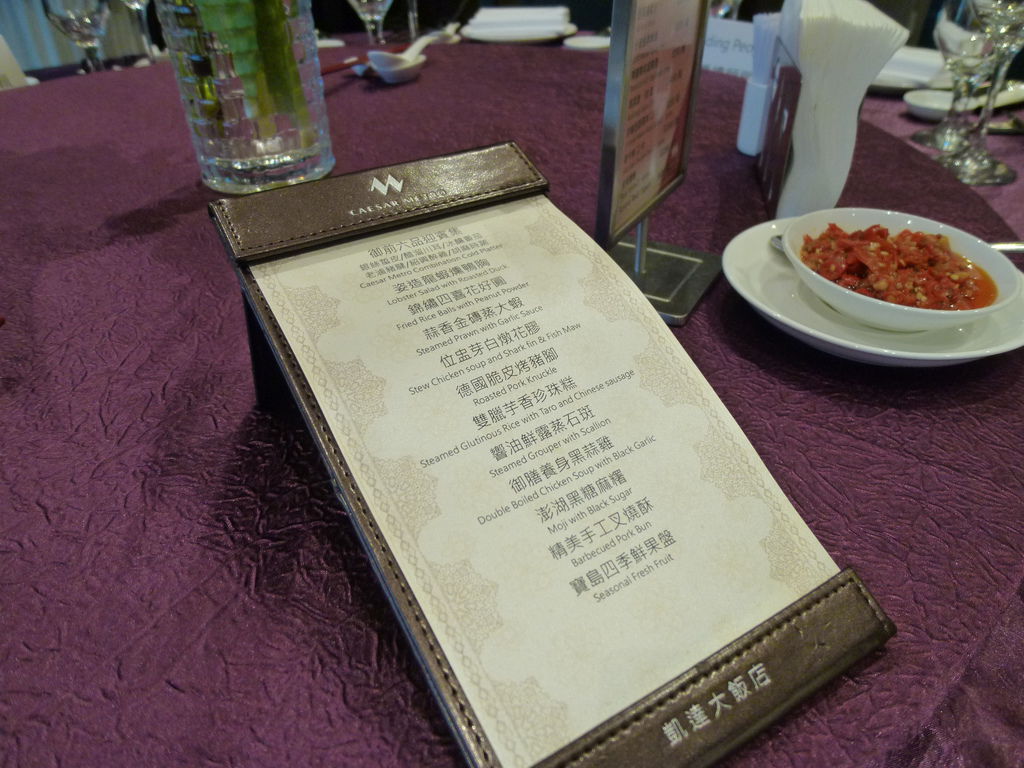 CAESAR METRO
御前六品迎賓集
老滷豬腱/紹興醉雞/胡麻時蔬
Caesar Metro Combination Cold Platter
姿造龍蝦燻鴨胸
Lobster Salad with Roasted Duck
錦繡四喜花好圓
Fried Rice Balls with Peanut Powder
蒜香金磚蒸大蝦
Steamed Prawn with Garlic Sauce
位盅芽白燉花膠
Stew Chicken soup and Shark fin & Fish Maw
德國脆皮烤豬腳
Roasted Pork Knuckle
雙臘芋香珍珠糕
Steamed Glutinous Rice with Taro and Chinese sausage
響油鮮露蒸石斑
Steamed Grouper with Scallion
御膳養身黑蒜雞
Double Boiled Chicken Soup with Black Garlic
澎湖黑糖麻糬
Moji with Black Sugar
精美手工叉燒酥
Barbecued Pork Bun
寶島四季鮮果盤
Seasonal Fresh Fruit
凱達大飯店